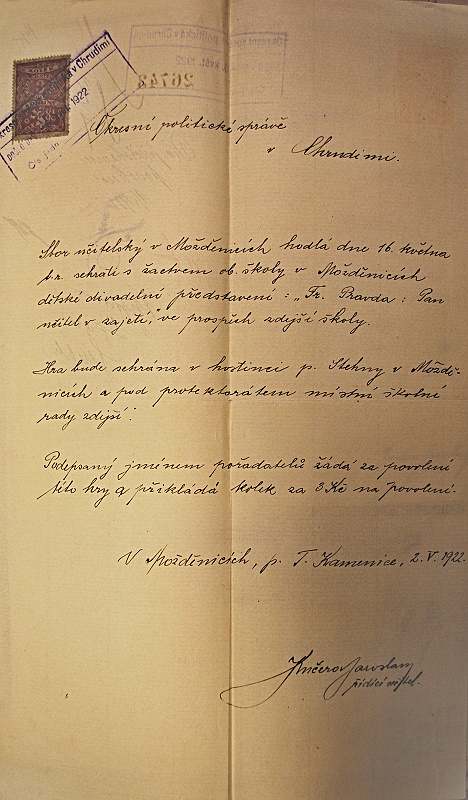 Okresní politické správě
v Chrudimi.
Sbor učitelský v Možděnicích hodlá dne 16. května
t. r. sehráti s žactvem ob. školy v Možděnicích
dětské divadelní představení: „Fr. Pravda: Pan
učitel v zajetí," ve prospěch zdejší školy.
Hra bude sehrána v hostinci p. Stehny v Moždě-
nicích a pod protektorátem místní školní
rady zdejší.
Podepsaný jménem pořadatelů žádá za povolení
této hry a přikládá kolek za 3 Kč na povolení.
V Možděnicích, p. T. Kamenice, 2. V. 1922.
Kučera Jaroslav
řídící učitel.
v Chrudimi
1922
26743